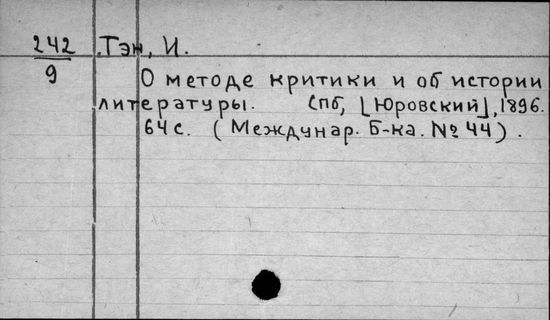 242
9
Тэн, И.
О методе критики и об истории
литературы. Спб, [Юровский], 1896.
64 с. (Междунар. Б-ка. № 44).